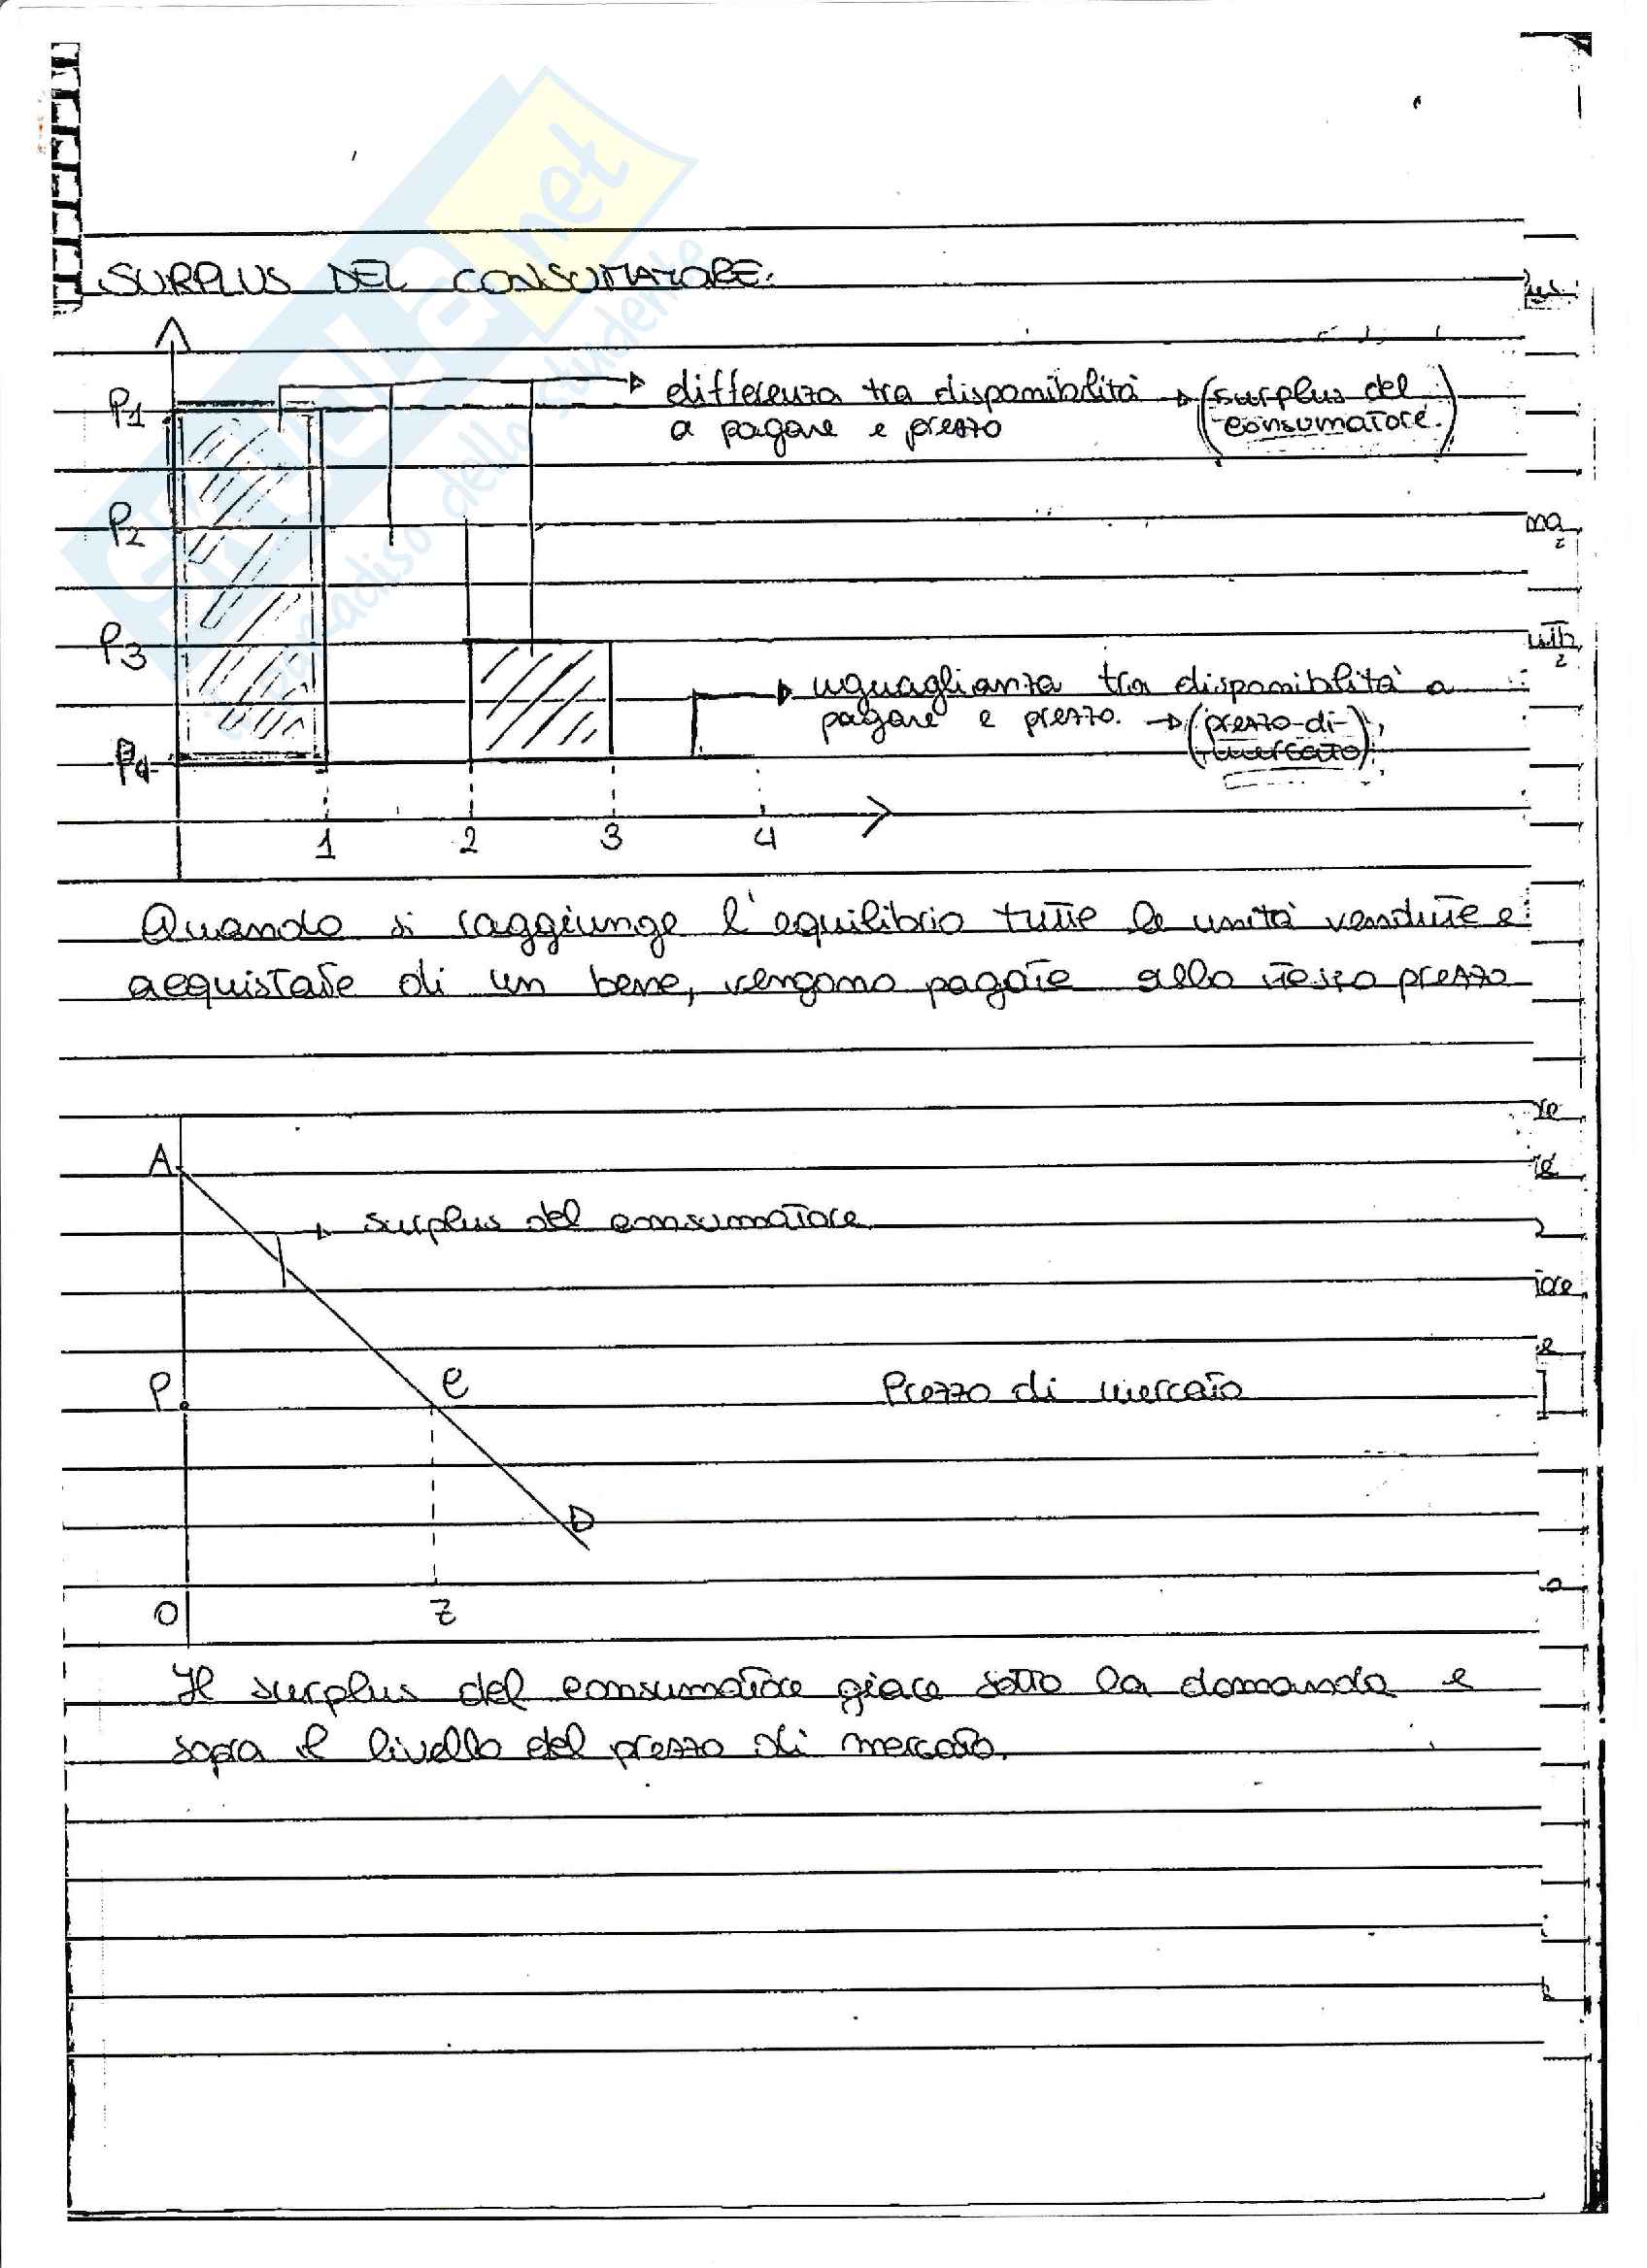 SURPLUS DEL CONSUMATORE:
P1
differenza tra disponibilità → (surplus del
a pagare e prezzo consumatore.)
P2
P3
uguaglianza tra disponibilità a
pagare e prezzo. → (prezzo di
mercato)
P4
1 2 3 4
Quando si raggiunge l'equilibrio tutte le unità vendute e
acquistate di un bene, vengono pagate allo stesso prezzo
A
surplus del consumatore
P e Prezzo di mercato
D
O z
Il surplus del consumatore giace sotto la domanda e
sopra il livello del prezzo di mercato.
Skuola.net
paradiso dello studente